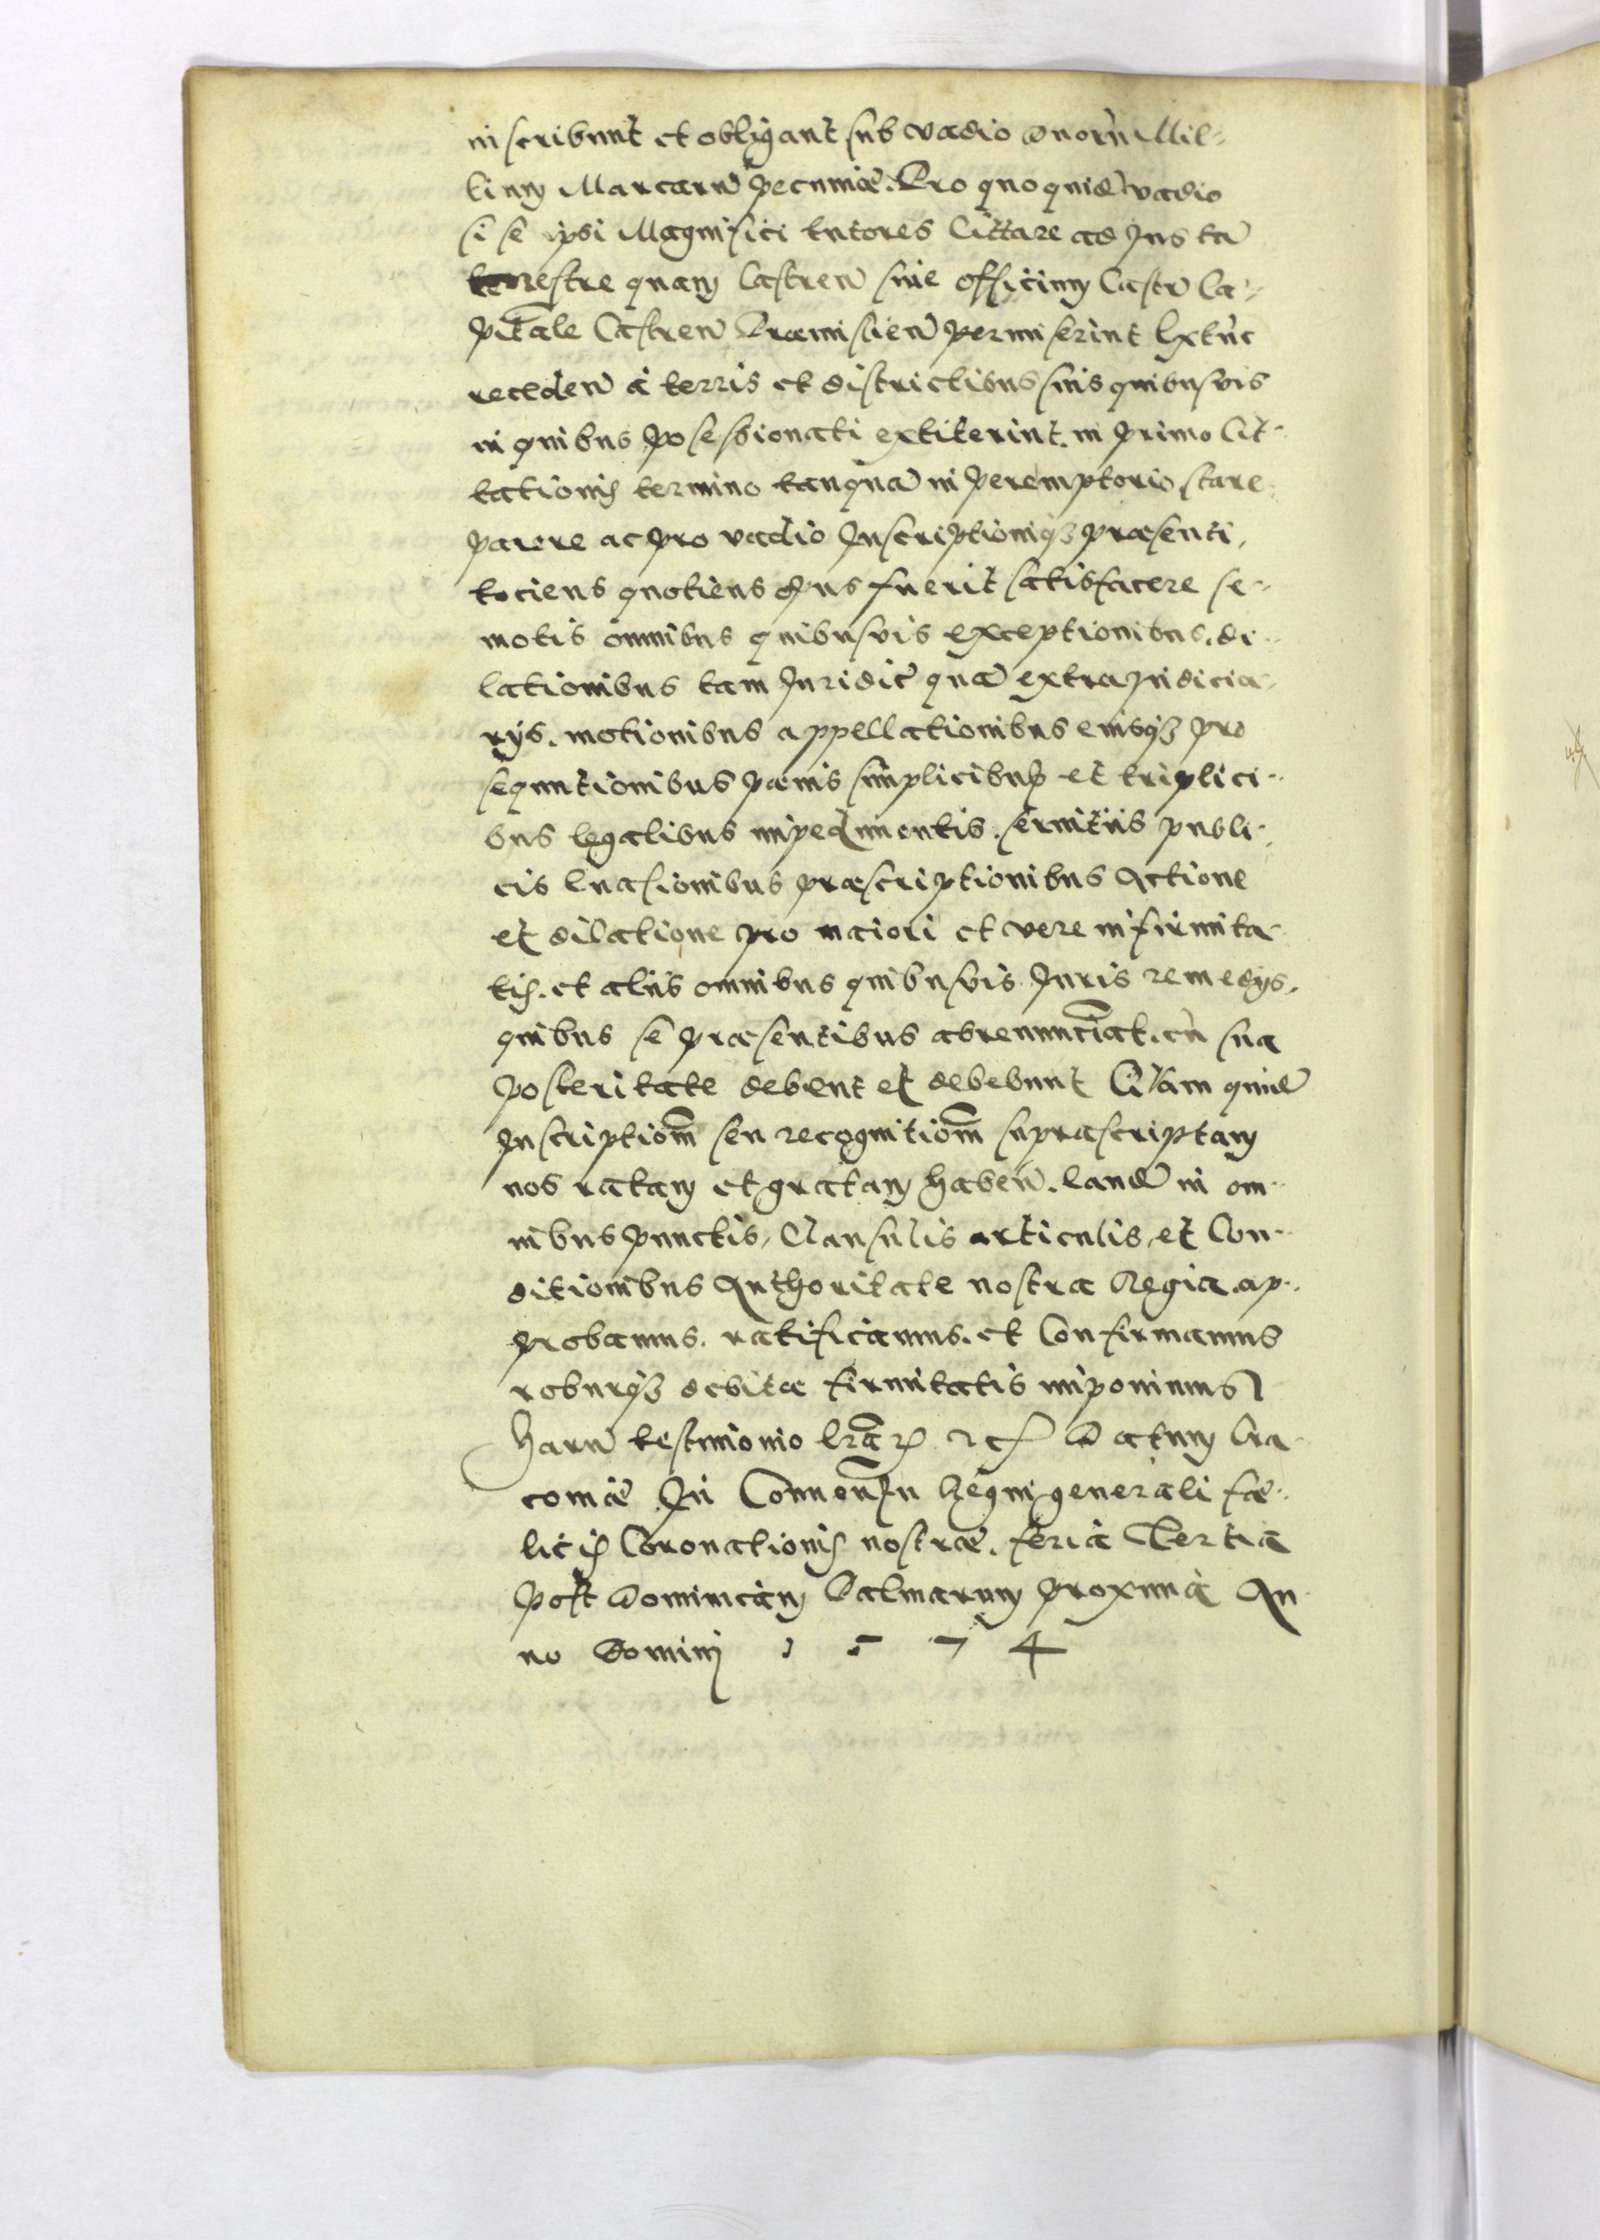 inscribunt et obligant sub vadio duorū Mil-
lium Marcarū pecuniæ. Pro quo quidē vadio
si se ipsi Magnifici tutores Cittare ad Jus tā
terrestre quam Castreñ siue officium Castrñ Ca-
pitale Castreñ Præmislieñ permiserint Extūc
recedeñ à terris et districtibus suis quibusvis
in quibus possessionati extiterint. in primo Cit-
tationis termino tanquā in peremptorio stare
parere ac pro vadio Inscriptioniq; præsenti,
tociens quotiens opus fuerit satisfacere se-
motis omnibus quibusvis exceptionibus. di-
lationibus tam Juridić quā extrajudicia-
rys. motionibus appellationibus eiusq; pro
sequutionibus pænis simplicibus et triplici-
bus legalibus impedimentis. seruitiis publi-
cis Euasionibus præscriptionibus Actione
et dilatione pro maiori et vere infirmita-
tis. et aliis omnibus quibusvis Juris remedys,
quibus se præsentibus abrenunciat. cū sua
posteritate debent et debebunt Quam quidē
Inscriptiom̄ seu recognitiom̄ suprascriptam
nos ratam et gratam habeñ. eandē in om-
nibus punctis, Clausulis articulis, et Con-
ditionibus Authoritate nostra Regia. ap-
probamus. ratificamus. et Confirmamus
roburq; debitæ firmitatis imponimus
harū testimonio lrāꝝ etc Datum Cra-
couiæ In Conuentu Regni generali fæ-
licis Coronationis nostræ. feria Tertia
post Dominicam Palmarum proxima An
no Domini 1 5 7 4